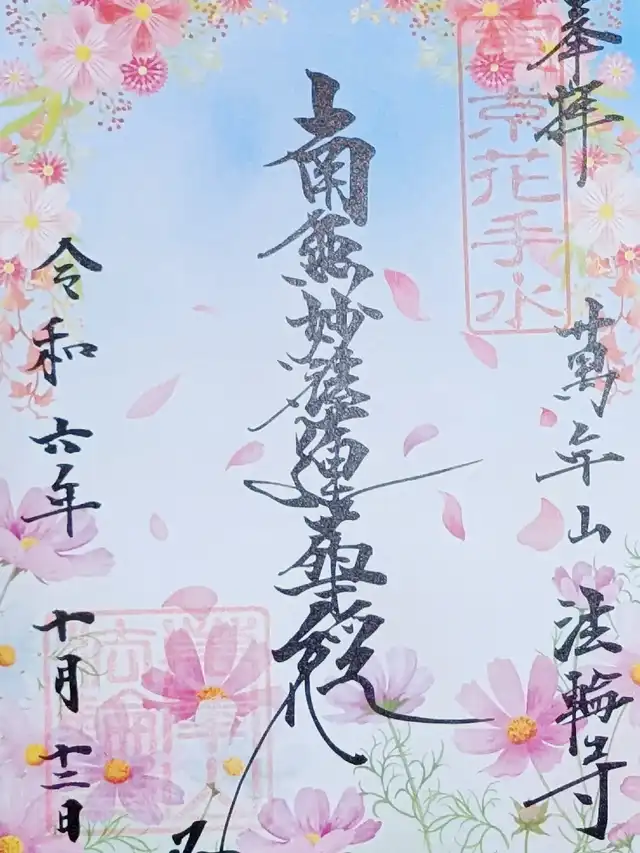 奉拝
萬年山 法輪寺
京花手水
南無妙法蓮華経
令和六年 十月十二日